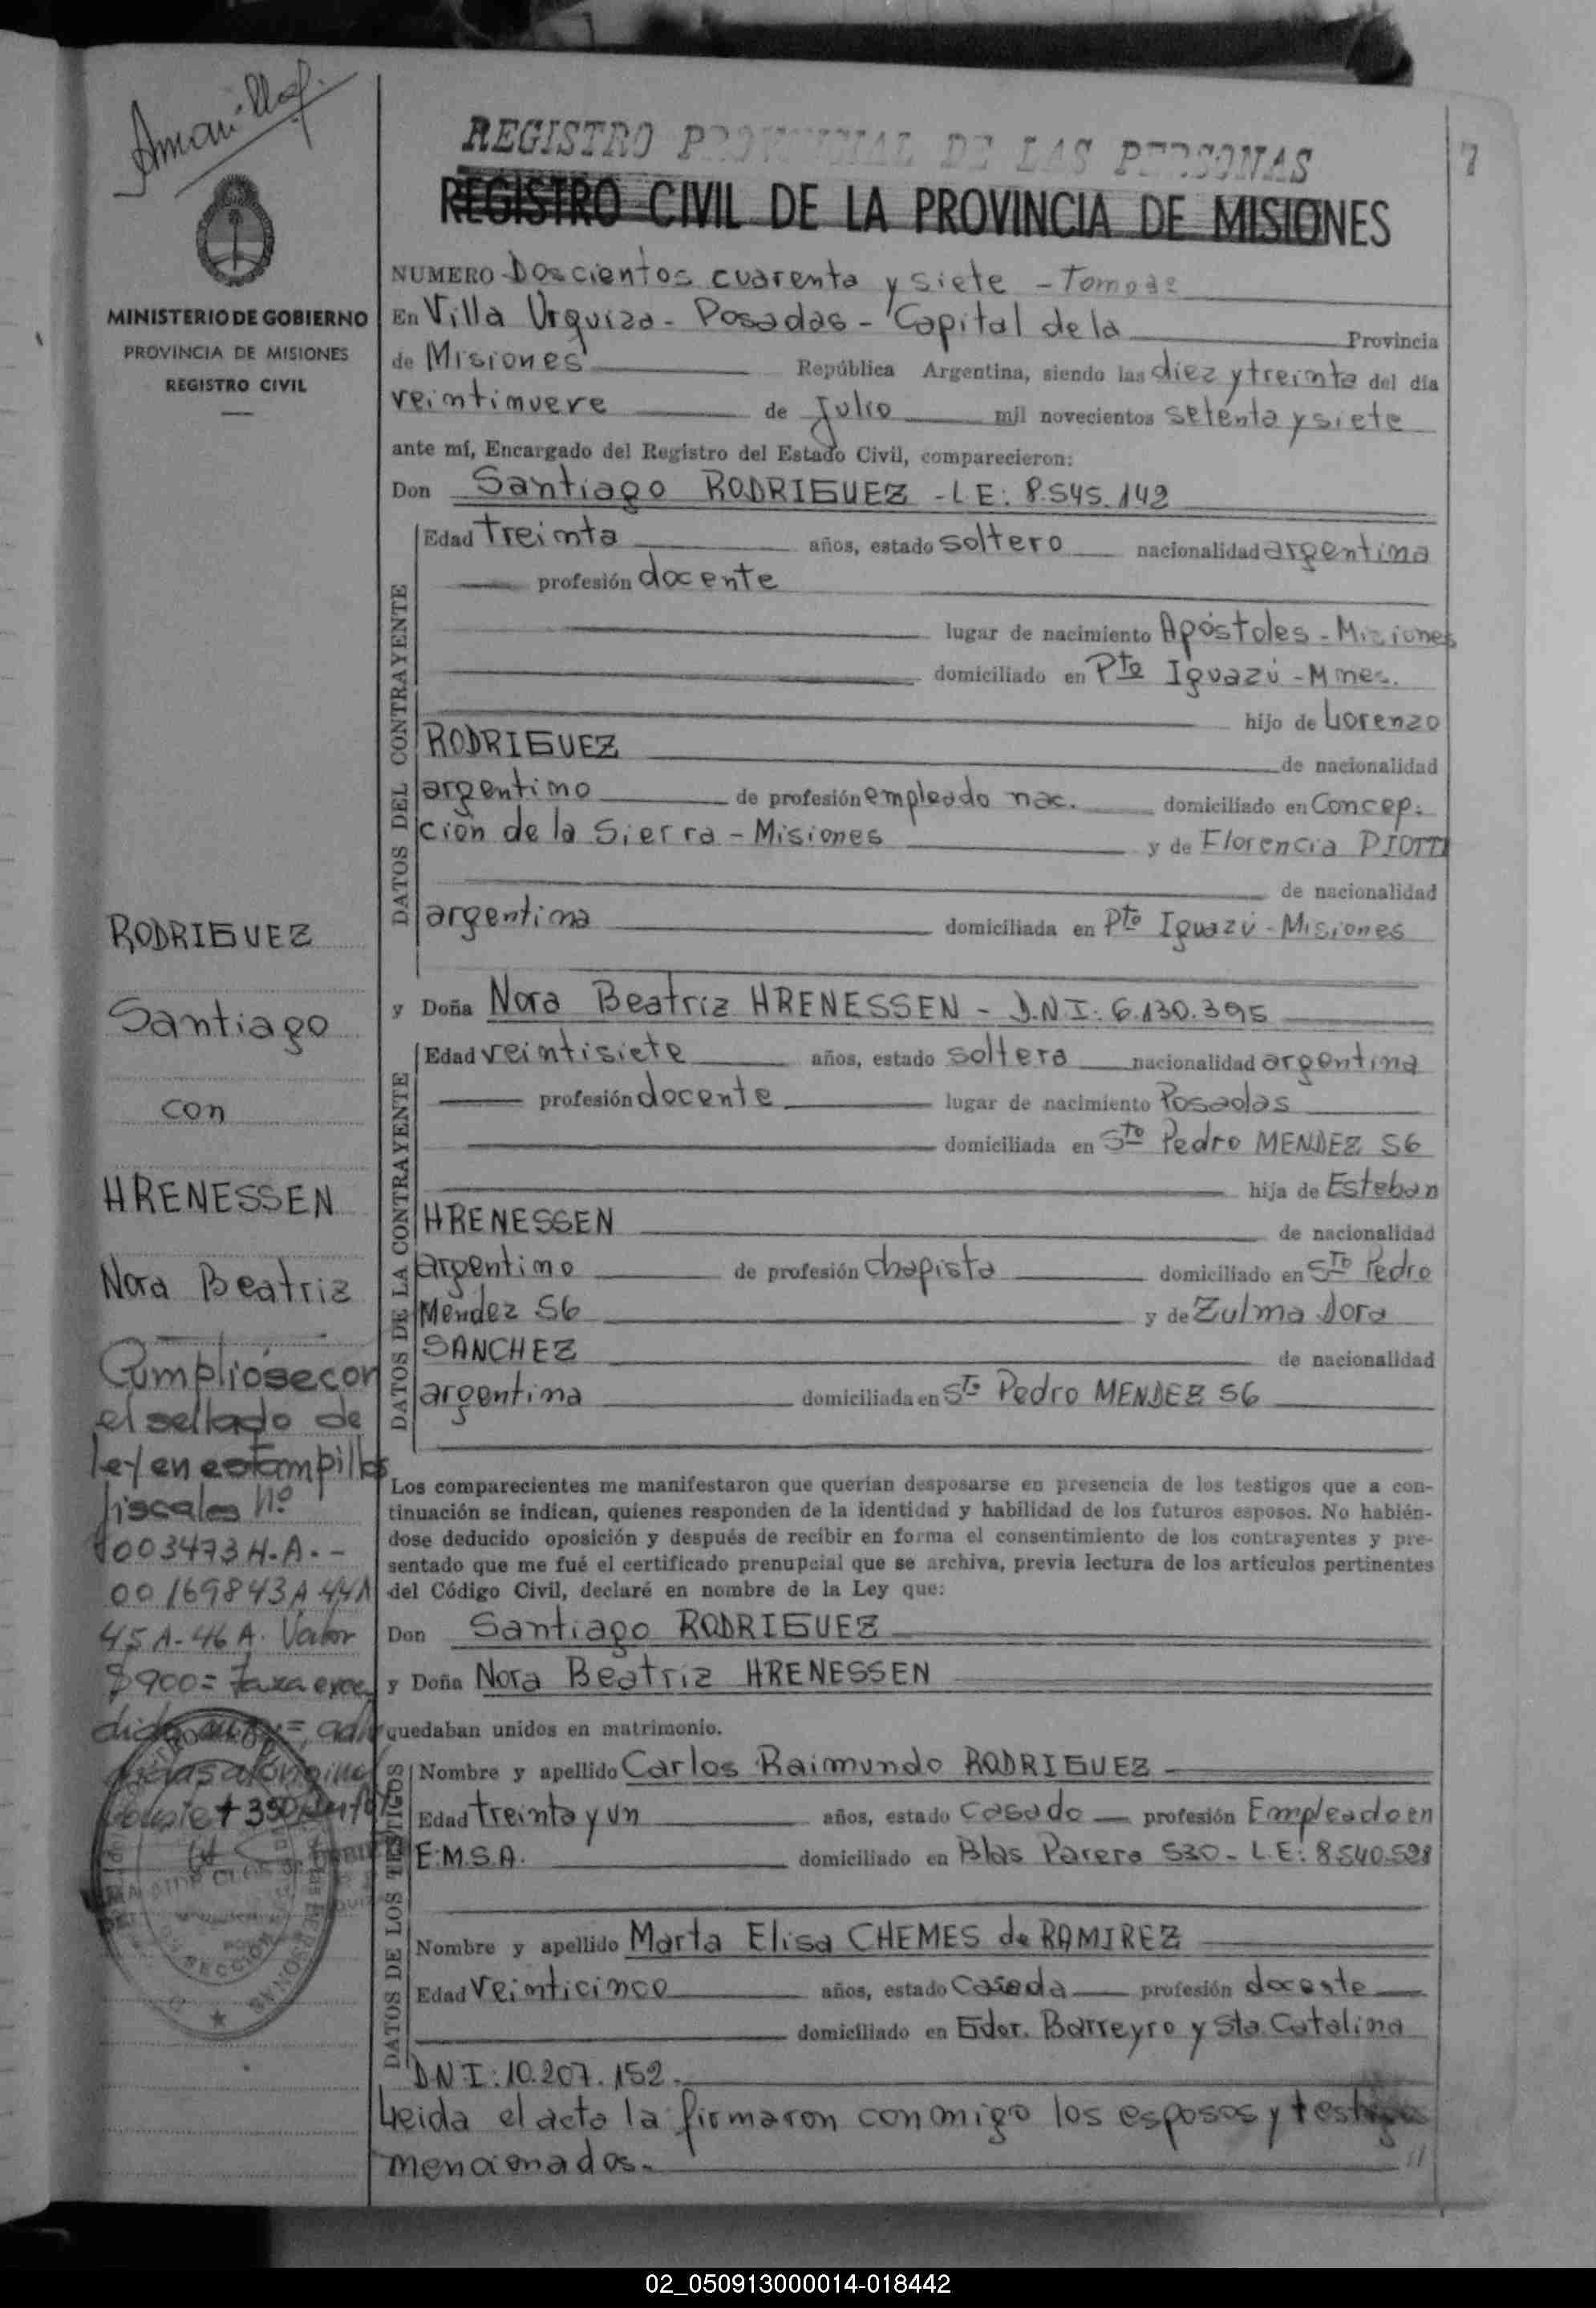 Amarilla
REGISTRO PROVINCIAL DE LAS PERSONAS
7
REGISTRO CIVIL DE LA PROVINCIA DE MISIONES
MINISTERIO DE GOBIERNO
PROVINCIA DE MISIONES
REGISTRO CIVIL
NUMERO Doscientos cuarenta y siete - Tomo
En Villa Urquiza - Posadas - Capital de la Provincia
de Misiones República Argentina, siendo las diez y treinta del día
veintinueve de Julio mil novecientos setenta y siete
ante mí, Encargado del Registro del Estado Civil, comparecieron:
Don Santiago RODRIGUEZ - L.E: 8.545.142
DATOS DEL CONTRAYENTE
Edad treinta años, estado soltero nacionalidad argentina
profesión docente
lugar de nacimiento Apóstoles - Misiones
domiciliado en Pto Iguazú - Mnes.
hijo de Lorenzo
RODRIGUEZ de nacionalidad
argentino de profesión empleado nac. domiciliado en Concep-
ción de la Sierra - Misiones y de Florencia PIOTTI
de nacionalidad
argentina domiciliada en Pto Iguazú - Misiones
y Doña Nora Beatriz HRENESSEN - D.N.I: 6.130.395
DATOS DE LA CONTRAYENTE
Edad veintisiete años, estado soltera nacionalidad argentina
profesión docente lugar de nacimiento Posadas
domiciliada en Sto Pedro MENDEZ 56
hija de Esteban
HRENESSEN de nacionalidad
argentino de profesión chapista domiciliado en Sto Pedro
Mendez 56 y de Zulma Dora
SANCHEZ de nacionalidad
argentina domiciliada en Sto Pedro MENDEZ 56
Los comparecientes me manifestaron que querían desposarse en presencia de los testigos que a con-
tinuación se indican, quienes responden de la identidad y habilidad de los futuros esposos. No habién-
dose deducido oposición y después de recibir en forma el consentimiento de los contrayentes y pre-
sentado que me fué el certificado prenupcial que se archiva, previa lectura de los artículos pertinentes
del Código Civil, declaré en nombre de la Ley que:
Don Santiago RODRIGUEZ
y Doña Nora Beatriz HRENESSEN
quedaban unidos en matrimonio.
DATOS DE LOS TESTIGOS
Nombre y apellido Carlos Raimundo RODRIGUEZ
Edad treinta y un años, estado casado profesión Empleado en
E.M.S.A. domiciliado en Blas Parera 530 - L.E: 8.540.598
Nombre y apellido Marta Elisa CHEMES de RAMIREZ
Edad veinticinco años, estado casada profesión docente
domiciliado en Gdor. Barreyro y Sta. Catalina
D.N.I: 10.207.152.
Leida el acta la firmaron conmigo los esposos y testigos
mencionados.
RODRIGUEZ
Santiago
con
HRENESSEN
Nora Beatriz
Cumpliose con
el sellado de
ley en estampillas
fiscales Nº
003473 H.A.-
00169843 A 44 A
45 A - 46 A. Valor
$900=
02_050913000014-018442